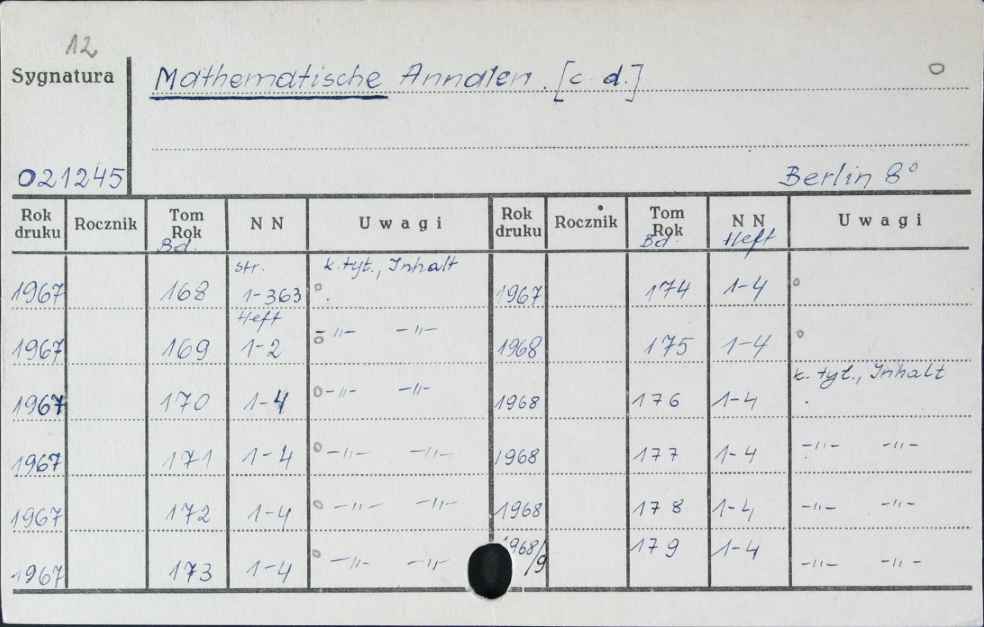 12
Sygnatura
Mathematische Annalen. [c. d.]
021245
Berlin 8°
Rok druku Rocznik Tom Rok Bd. N N U w a g i Rok druku Rocznik Tom Rok Bd. N N Heft U w a g i
1967 168 str. 1-363 k. tyt., Inhalt 1967 174 1-4
1967 169 Heft 1-2 -"- -"- 1968 175 1-4
1967 170 1-4 -"- -"- 1968 176 1-4 k. tyt., Inhalt
1967 171 1-4 -"- -"- 1968 177 1-4 -"- -"-
1967 172 1-4 -"- -"- 1968 178 1-4 -"- -"-
1967 173 1-4 -"- -"- 1968/9 179 1-4 -"- -"-